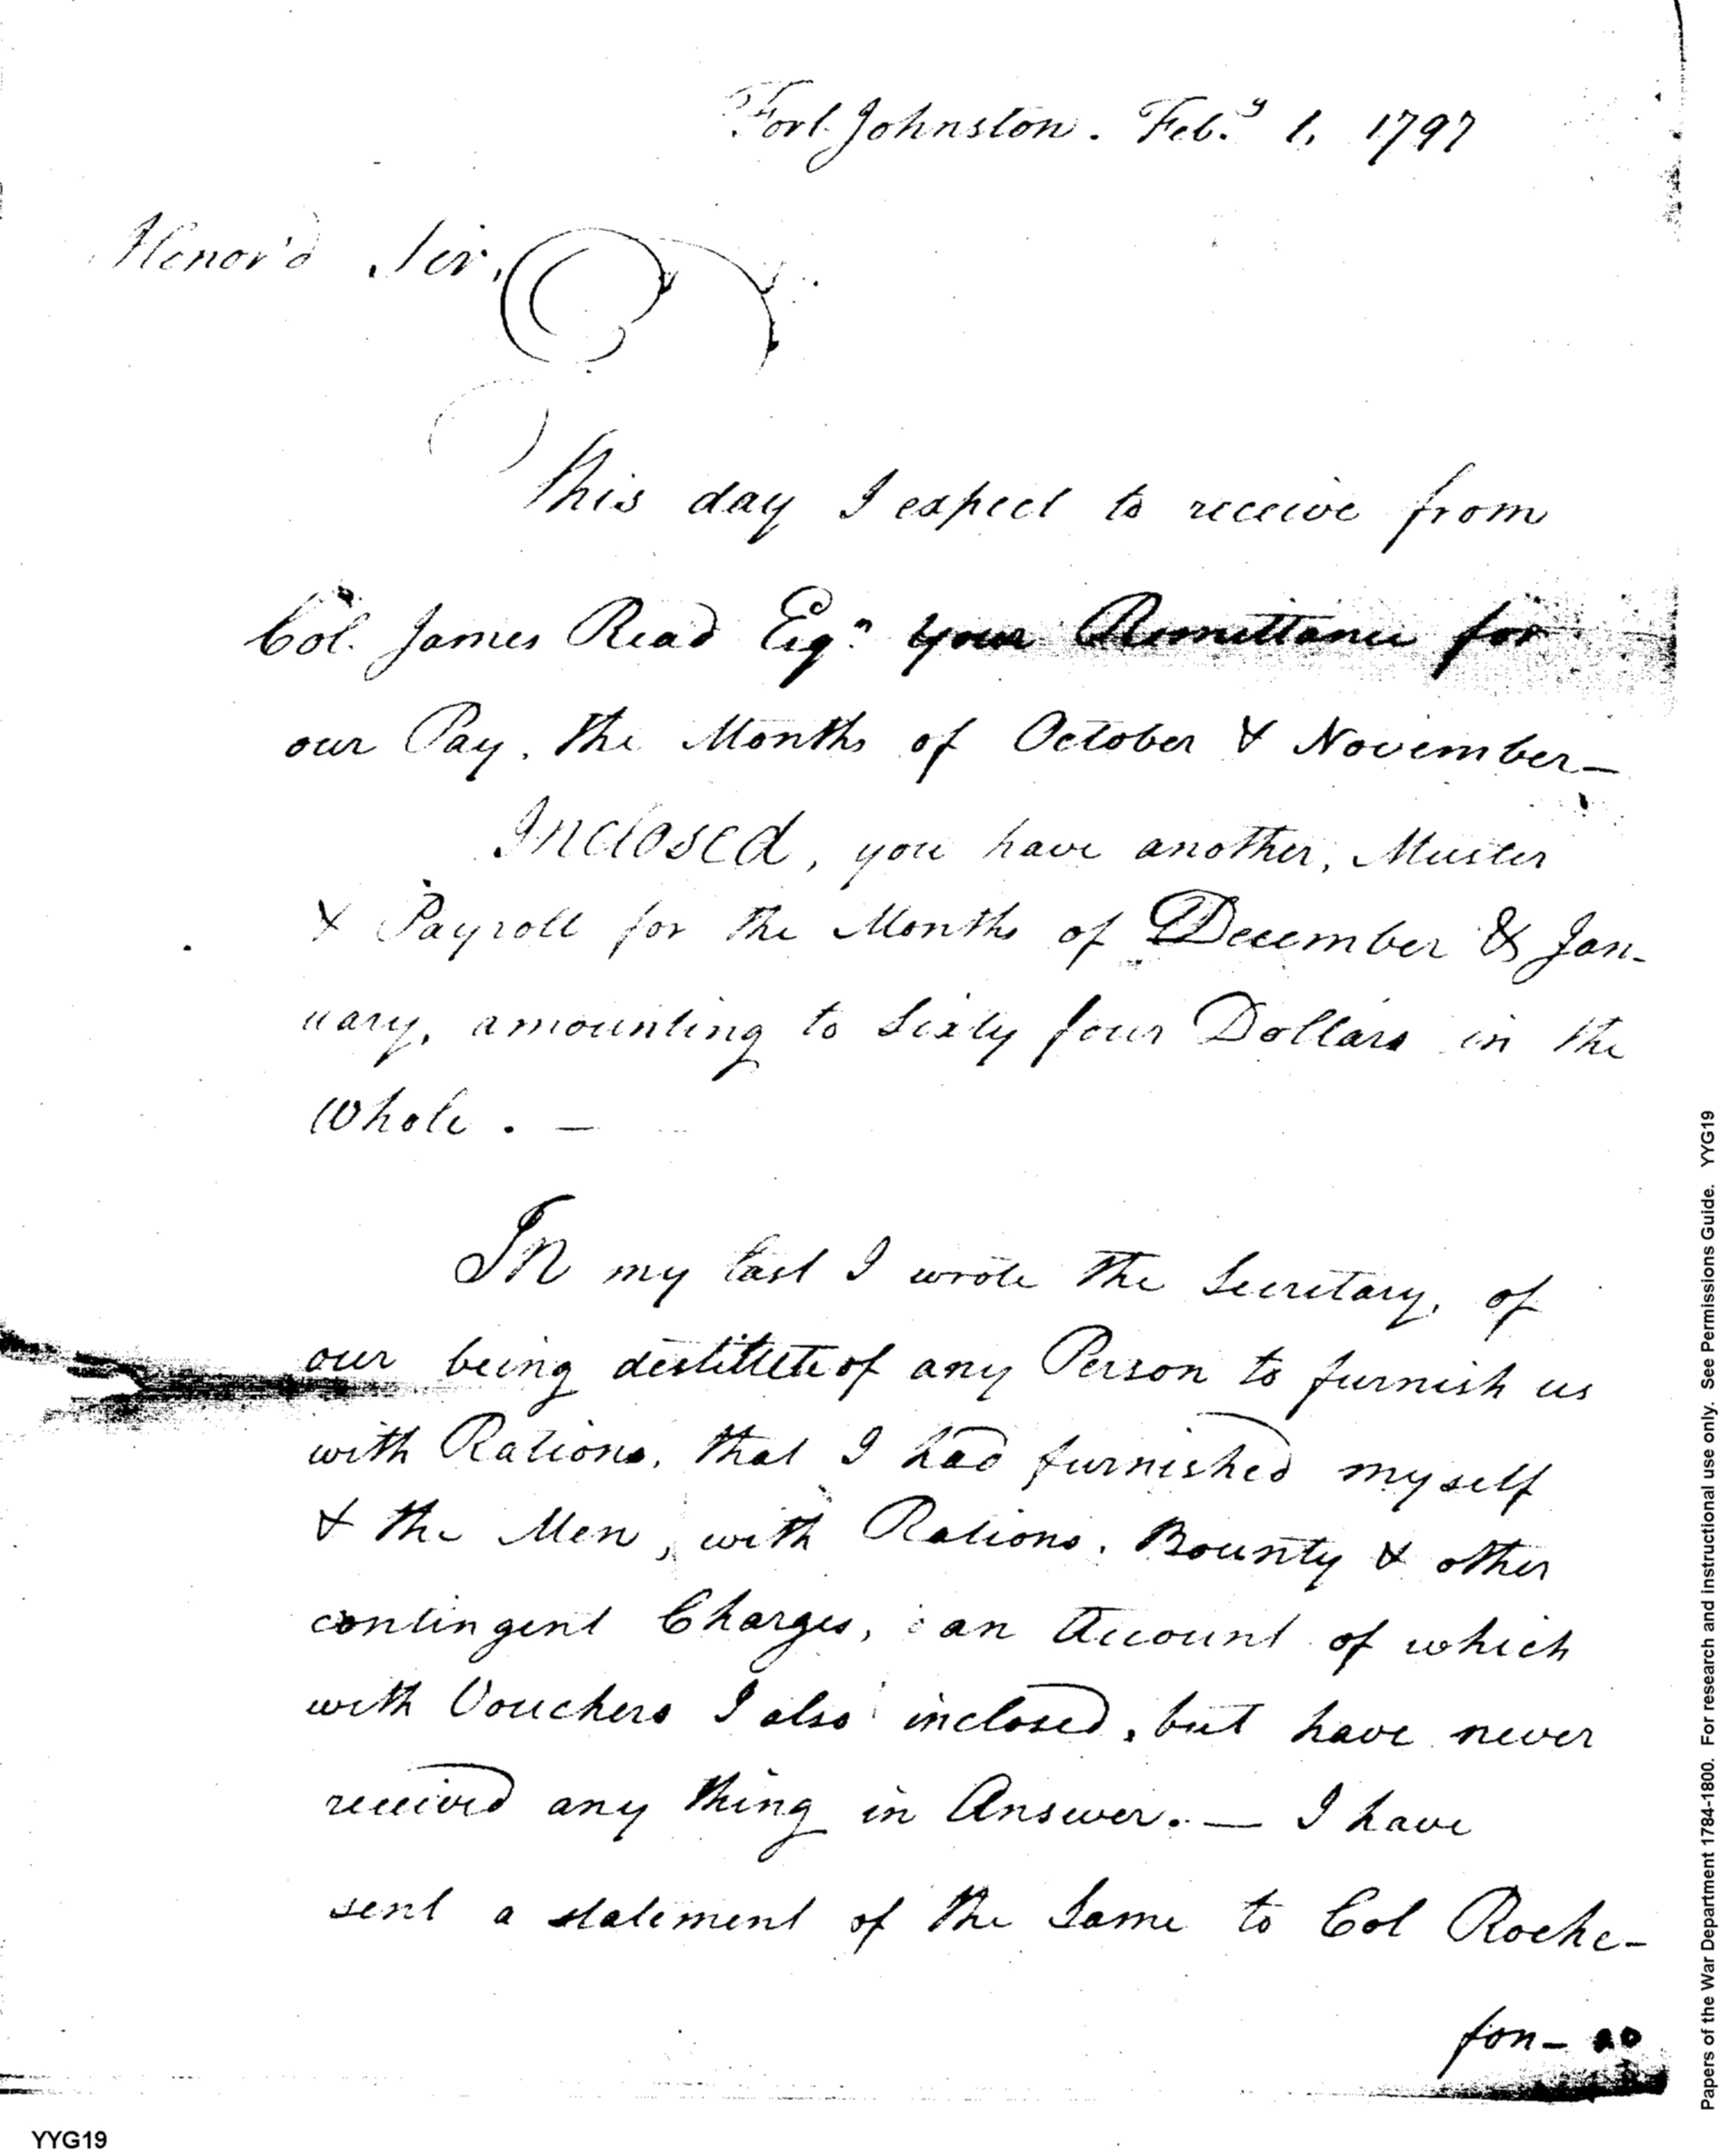 Fort Johnston. Feb.y 1, 1797
Honor'd Sir,
This day I expect to receive from
Col. James Read Esqr. your Remittance for
our Pay, the Months of October & November—
Inclosed, you have another, Muster
& Payroll for the Months of December & Jan-
uary, amounting to Sixty four Dollars in the
Whole. —
In my last I wrote the Secretary, of
our being destitute of any Person to furnish us
with Rations, that I had furnished myself
& the Men, with Rations, Bounty & other
contingent Charges, an Account of which
with Vouchers I also inclosed, but have never
received any thing in Answer. — I have
sent a statement of the Same to Col Roche-
fon-
YYG19
Papers of the War Department 1784-1800. For research and instructional use only. See Permissions Guide. YYG19